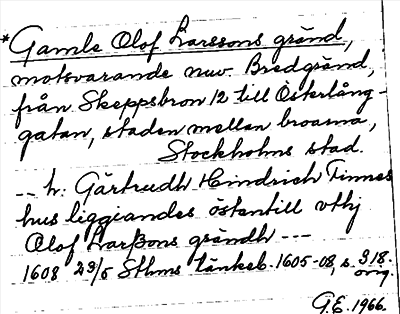 *Gamle Olof Larssons gränd,
motsvarande nuv. Bredgränd,
från Skeppsbron 12 till Österlång-
gatan, staden mellan broarna,
Stockholms stad.
-- h. Gärtrudh Hindrich Timmes
hus liggiandes östentill vthj
Olof Larßons grändh ---
1608 23/5 Sthms tänkeb. 1605-08, s. 318.
orig.
G.E. 1966.